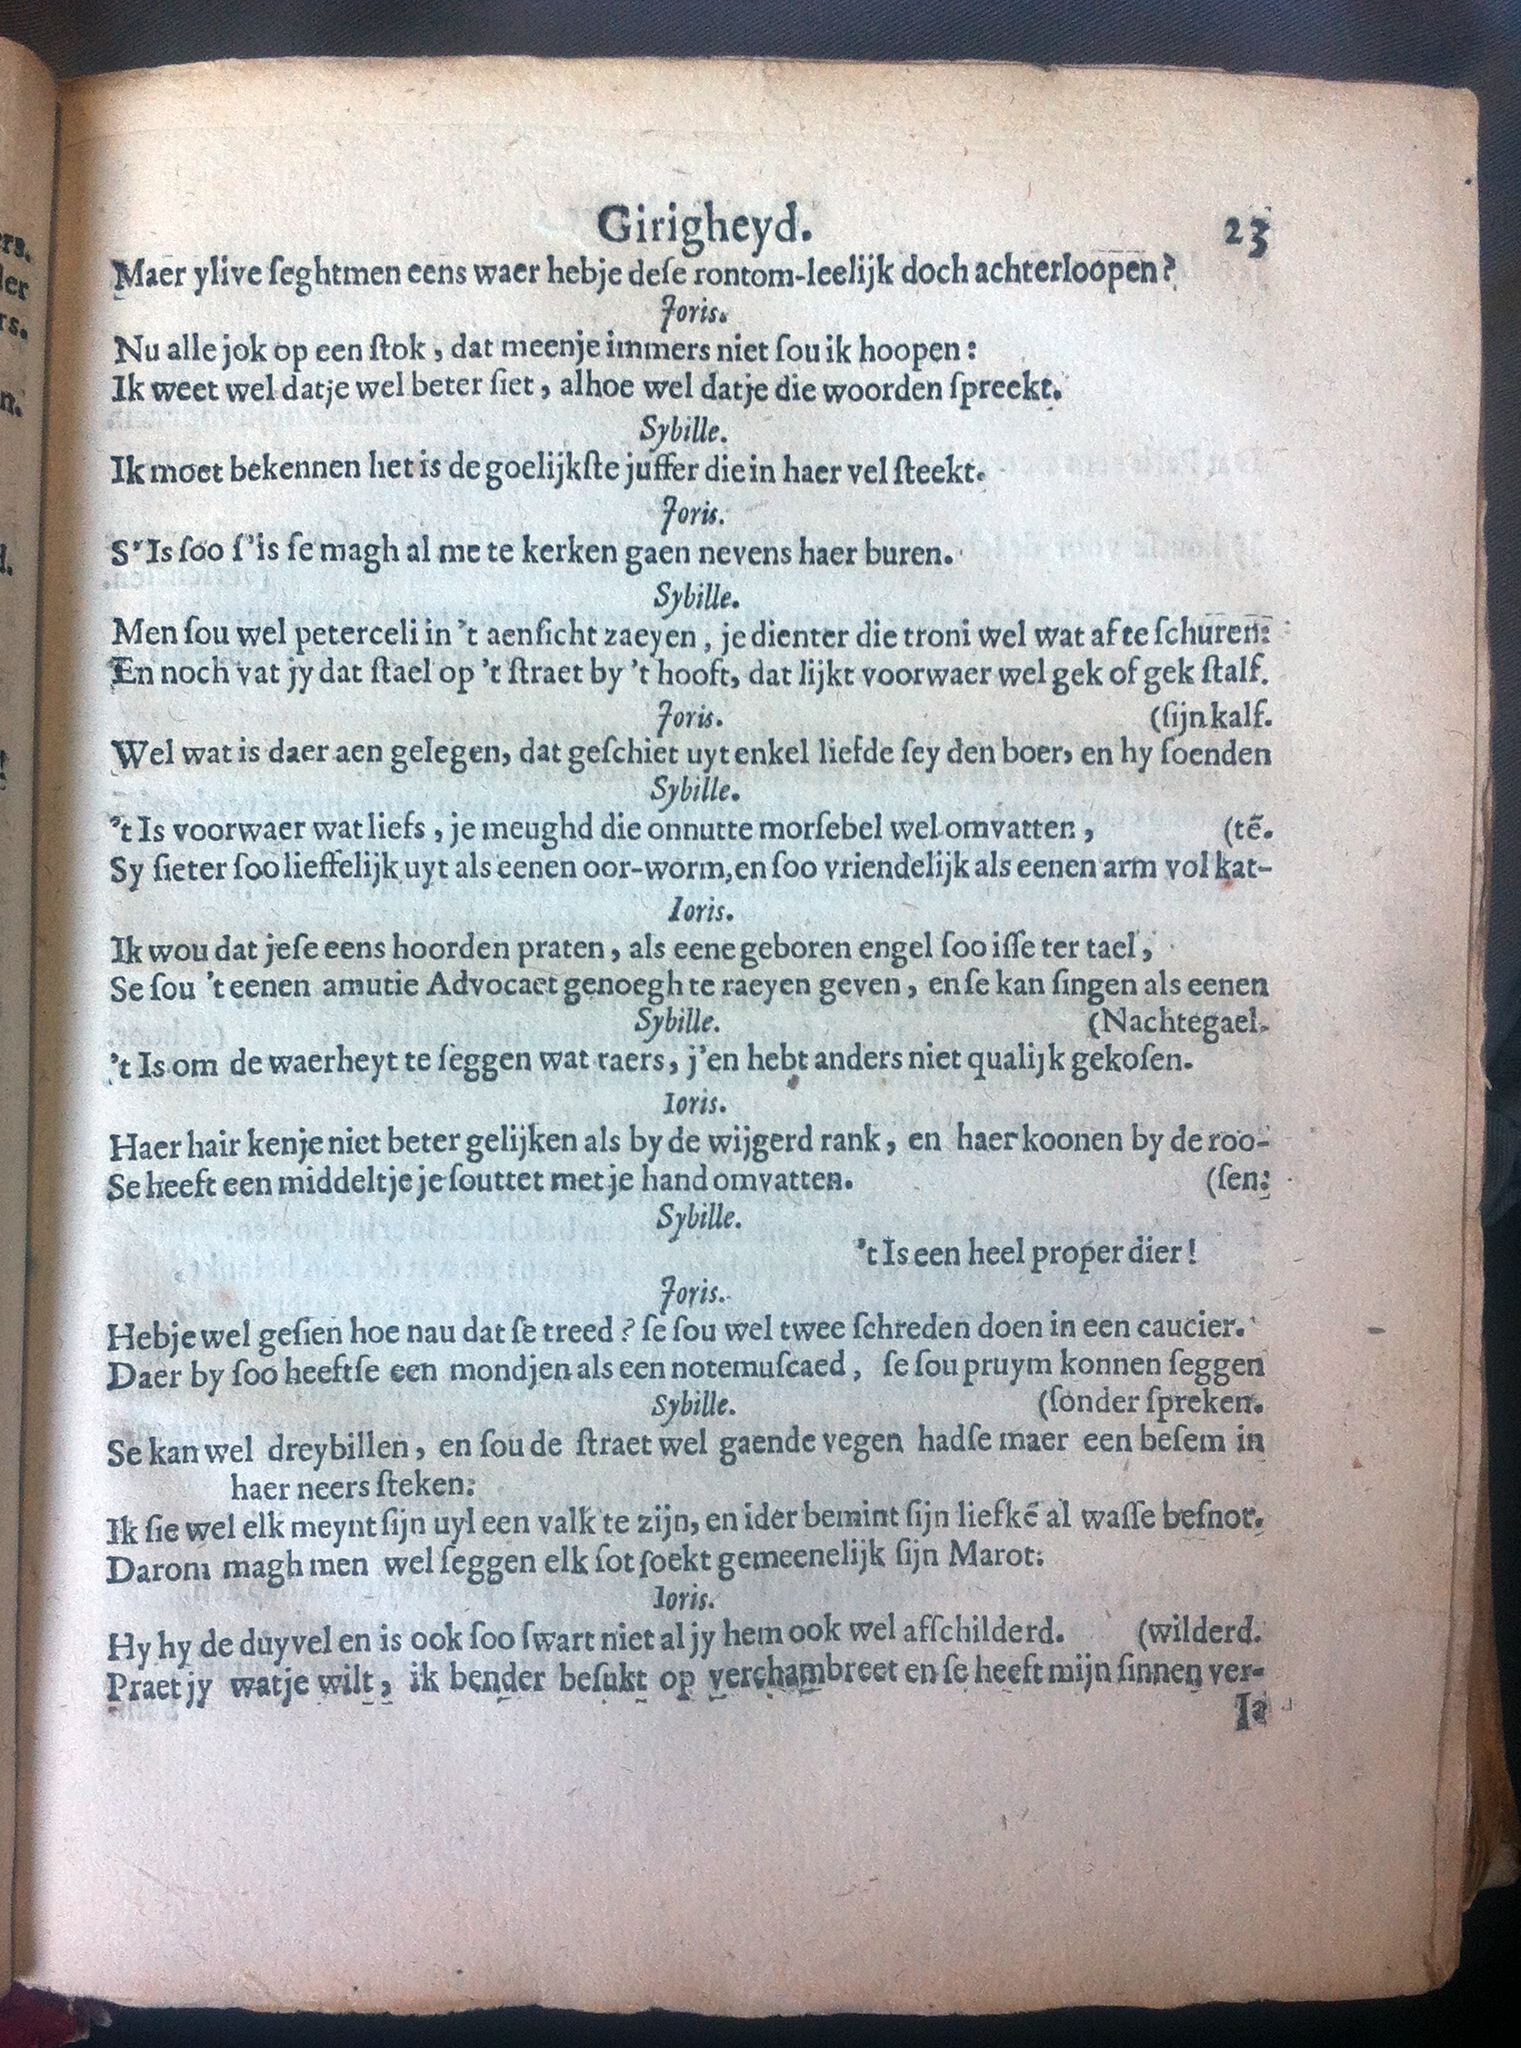 Girigheyd. 23
Maer ylive ſeghtmen eens waer hebje deſe rontom-leelijk doch achterloopen?
Joris.
Nu alle jok op een ſtok, dat meenje immers niet ſou ik hoopen:
Ik weet wel datje wel beter ſiet, alhoe wel datje die woorden ſpreekt.
Sybille.
Ik moet bekennen het is de goelijkſte juffer die in haer vel ſteekt.
Joris.
S'Is ſoo ſ'is ſe magh al me te kerken gaen nevens haer buren.
Sybille.
Men ſou wel peterceli in 't aenſicht zaeyen, je dienter die troni wel wat af te ſchuren:
En noch vat jy dat ſtael op 't ſtraet by 't hooft, dat lijkt voorwaer wel gek of gek ſtalf.
Joris. (ſijn kalf.
Wel wat is daer aen gelegen, dat geſchiet uyt enkel liefde ſey den boer, en hy ſoenden
Sybille.
't Is voorwaer wat liefs, je meughd die onnutte morſebel wel omvatten, (tē.
Sy ſieter ſoo lieffelijk uyt als eenen oor-worm, en ſoo vriendelijk als eenen arm vol kat-
Ioris.
Ik wou dat jeſe eens hoorden praten, als eene geboren engel ſoo iſſe ter tael,
Se ſou 't eenen amutie Advocaet genoegh te raeyen geven, en ſe kan ſingen als eenen
Sybille. (Nachtegael.
't Is om de waerheyt te ſeggen wat raers, j'en hebt anders niet qualijk gekoſen.
Ioris.
Haer hair kenje niet beter gelijken als by de wijgerd rank, en haer koonen by de roo-
Se heeft een middeltje je ſouttet met je hand omvatten. (ſen:
Sybille.
't Is een heel proper dier!
Joris.
Hebje wel geſien hoe nau dat ſe treed? ſe ſou wel twee ſchreden doen in een caucier.
Daer by ſoo heeftſe een mondjen als een notemuſcaed, ſe ſou pruym konnen ſeggen
Sybille. (ſonder ſpreken.
Se kan wel dreybillen, en ſou de ſtraet wel gaende vegen hadſe maer een beſem in
haer neers ſteken:
Ik ſie wel elk meynt ſijn uyl een valk te zijn, en ider bemint ſijn liefkē al waſſe beſnot.
Darom magh men wel ſeggen elk ſot ſoekt gemeenelijk ſijn Marot:
Ioris.
Hy hy de duyvel en is ook ſoo ſwart niet al jy hem ook wel afſchilderd. (wilderd.
Praet jy watje wilt, ik bender beſukt op verchambreet en ſe heeft mijn ſinnen ver-
Ia